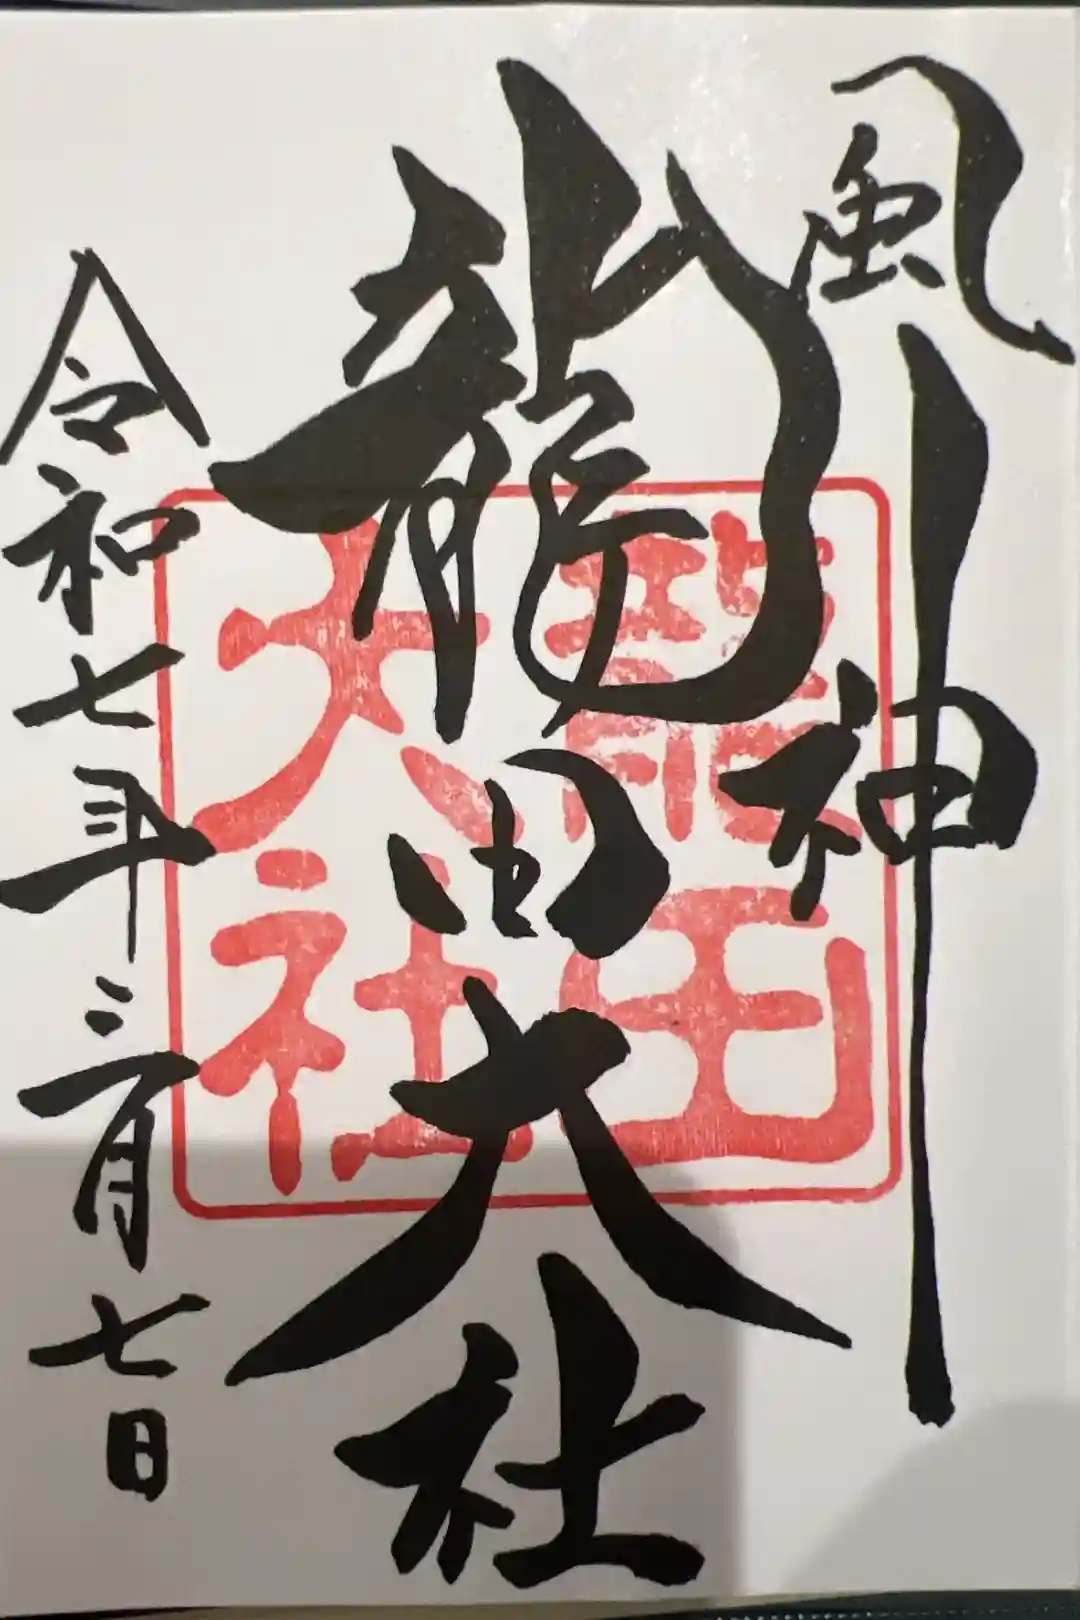 風神
龍田大社
龍田
大社
令和七年三月七日